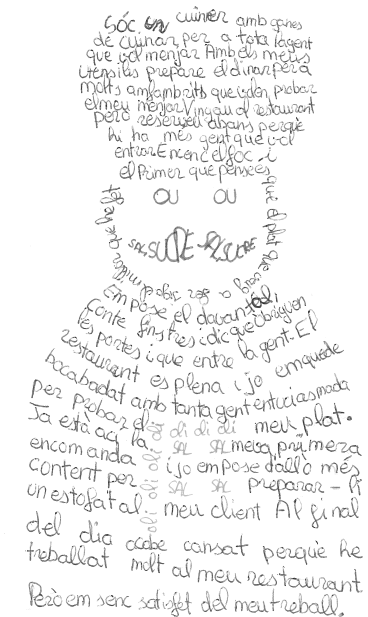 Sóc un cuiner amb ganes
de cuinar, per a tota la gent
que vol menjar Amb els meus
utensilis prepare el dinar per a
molts amfambrits que volen probar
el meu menjar Vingau al restaurant
però reserveu abans perquè
hi ha més gent que vol
entrar Encenc el foc i
el Primer que pensés
OU OU
que el plat que vaig a ser
millor que he fet
SAL SUCRE SUCRE
Em pose el davantal,
Conte finstres i dic que obriguen
les portes i que entre la gent. El
restaurant es plena i jo em quede
bocabadat amb tanta gent entuciasmada
per probar el meu plat.
oli oli di di di
Ja està aq la SAL SAL meva primera
encomanda SAL i jo em pose d'allò més
content per SAL SAL preparar-li
un estofat al meu client Al final
oli oli oli oli
del dia acabe cansat perquè he
treballat molt al meu restaurant
Però em senc satisfet del meu treball.